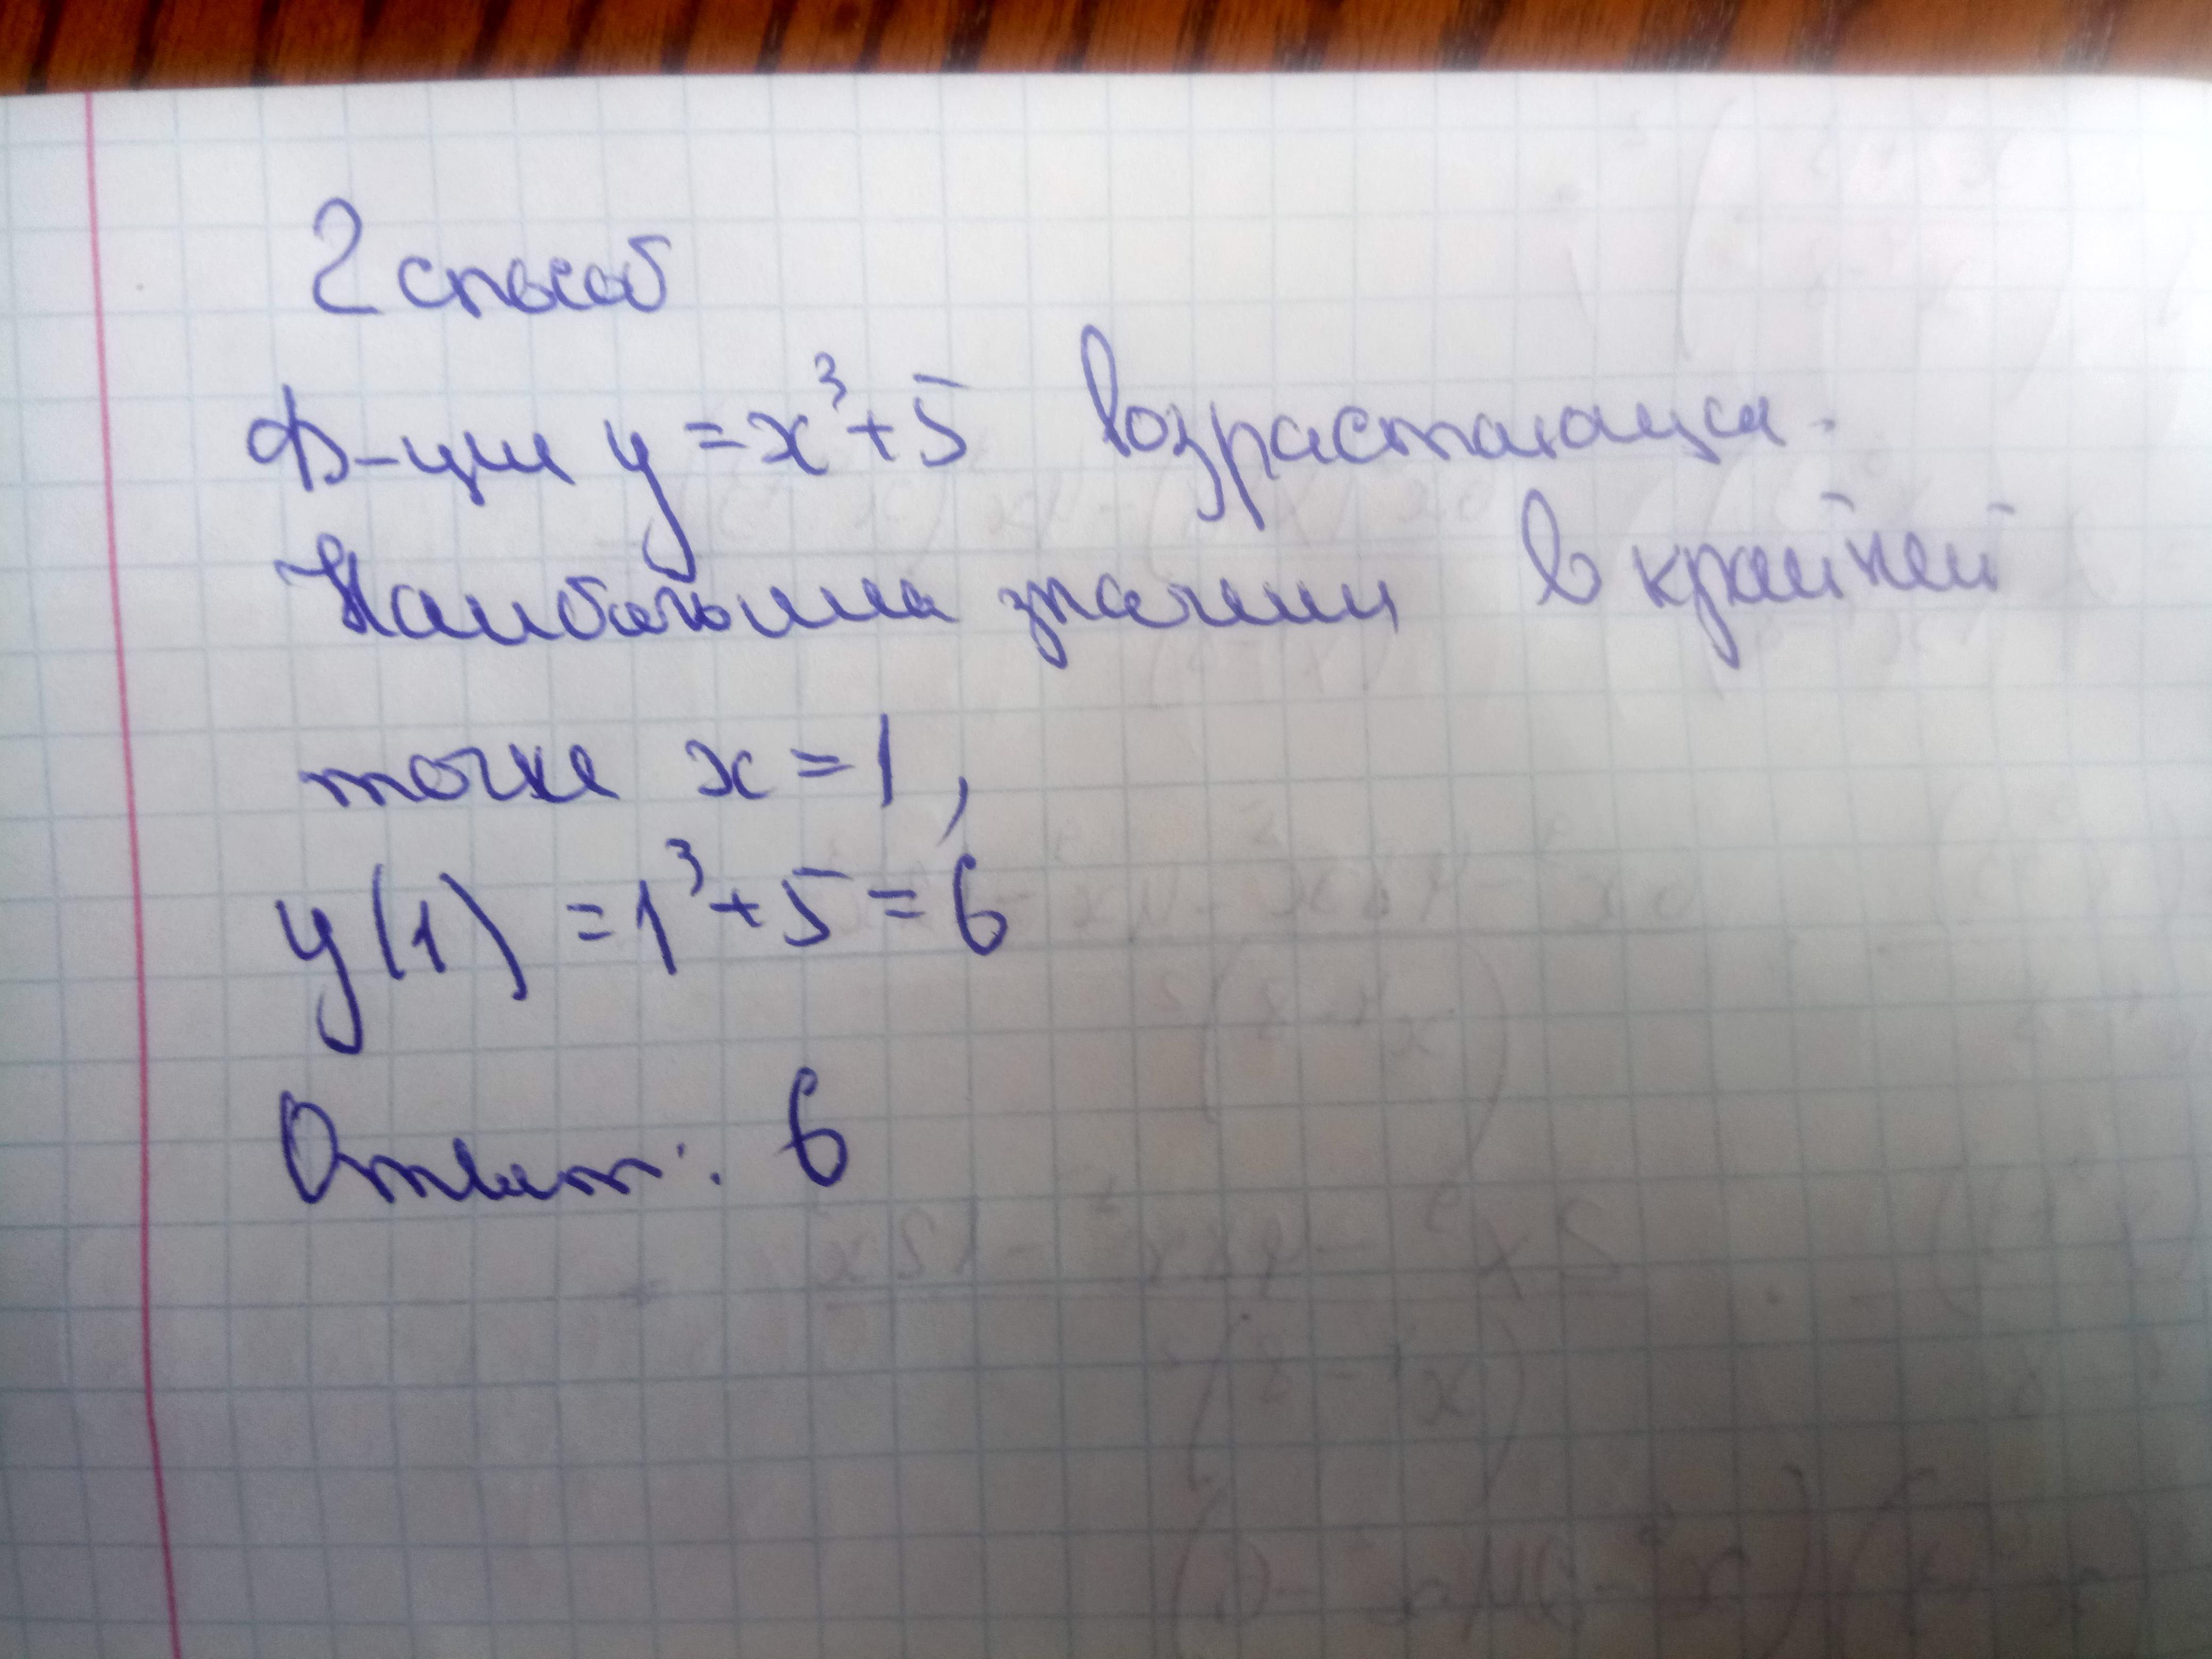 2 способ
Ф-ция y = x³+5 возрастающая.
Наибольшее значение в крайней
точке x = 1,
y(1) = 1³+5 = 6
Ответ: 6